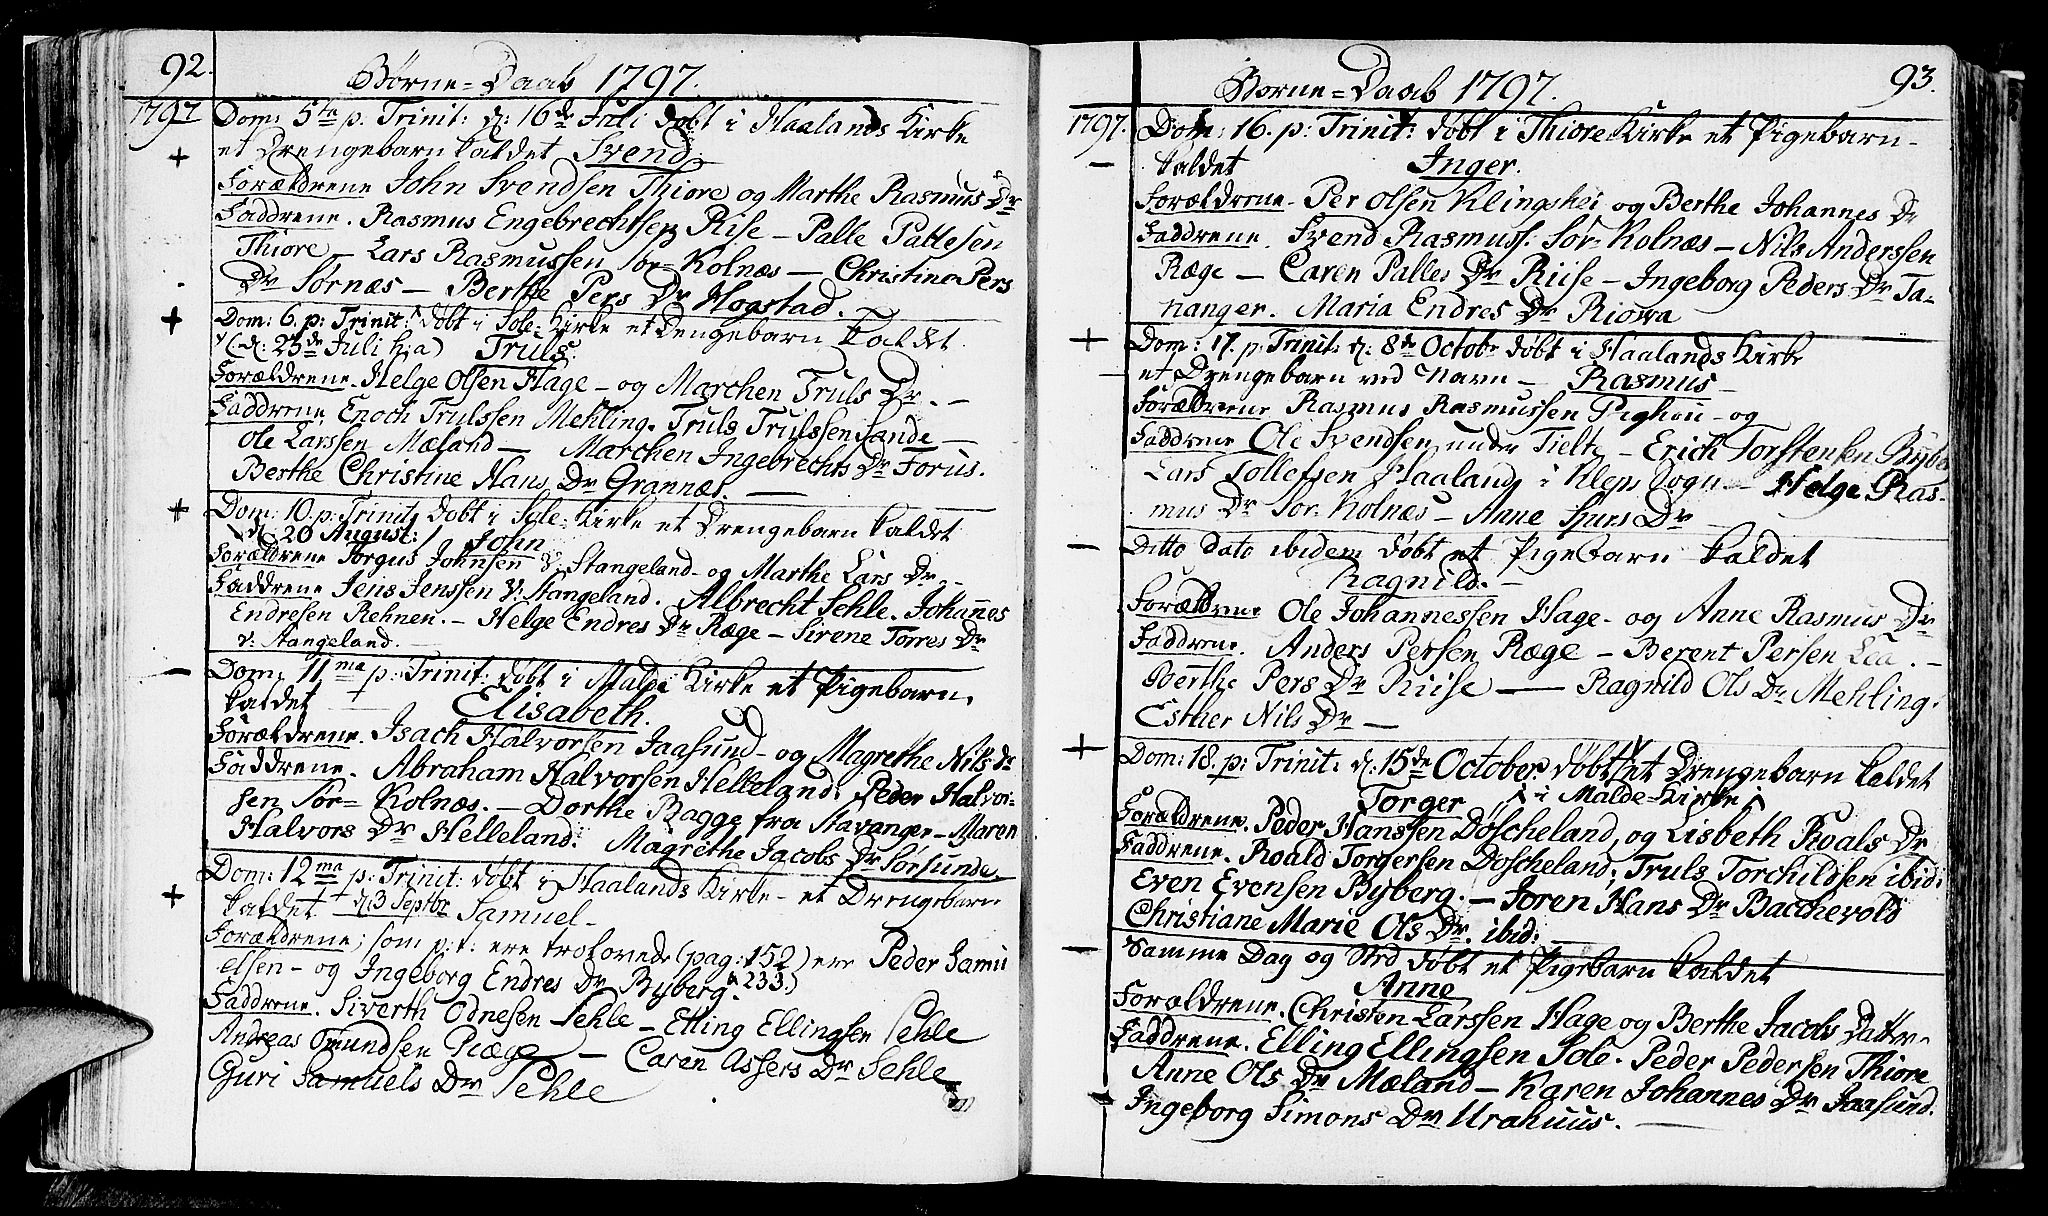 92.
Børne=Daab 1797.
1797
Dom: 5te p: Trinit: d: 16de Juli døbt i Haalands Kirke
+ et Drengebarn kaldet Svend.
Forældrene John Svendsen Thiore og Marthe Rasmus Dr
Faddrene. Rasmus Engebrechtsen Rise - Palle Pallesen
Thiore - Lars Rasmussen sør=Kolnæs - Christina Pers
Dr Sørnæs - Berthe Pers Dr Hogstad.
+ Dom: 6. p: Trinit: døbt i Sole=Kirke et Drengebarn kaldet
(d: 23de Juli h:a) Truls.
Forældrene. Helge Olsen Hage - og Marchen Truls Dr. -
Faddrene Enoch Trulssen Mehling. Truls Trulssen Sande -
Ole Larssen Mæland - Marchen Ingebrechts Dr Forus.
Berthe Christine Hans Dr Grannæs. -
+ Dom: 10. p: Trinit: døbt i Sole=Kirke et Drengebarn kaldet
d. 20 August: John
Forældrene Torgus Johnsen Stangeland - og Marthe Lars Dr. -
Faddrene Jens Jenssen v: Stangeland. Albrecht Sehle. Johannes
Endresen Rehnen. - Helge Endres Dr Ræge - Sirene Torres Dr
v: Stangeland. -
- Dom: 11ma p: Trinit: døbt i Malde Kirke et Pigebarn.
kaldet Elisabeth.
Forældrene. Isach Halvorsen Jaasund - og Magrethe Nils Dr
Faddrene. Abraham Halvorsen Helleland. Peder Halvor-
sen Sør=Kolnæs. - Dorthe Bagge fra Stavanger - Maren
Halvors Dr Helleland: Magrethe Jacobs Dr Sørsunde.
Dom: 12ma p: Trinit: døbt i Haalands Kirke - et Drengebarn
+ kaldet d. 3 Septbr Samuel -
Forældrene; som p:t: ere trolovede (pag: 152) ere Peder Samu
elsen - og Ingeborg Endres Dr Byberg. & 233.)
Faddrene. Siverth Odnesen Sehle - Elling Ellingsen Sehle
Andreas Omundsen Ræge - Caren Assers Dr Sehle
Guri Samuels Dr Sehle
93.
Børne=Daab 1797.
1797. Dom: 16. p: Trinit: døbt i Thiore Kirke et Pigebarn -
- kaldet Inger.
Forældrene - Per Olsen Klingshei og Berthe Johannes Dr
Faddrene. Svend Rasmuss. Sør=Kolnæs - Nils Anderssen
Ræge - Caren Palles Dr Riise - Ingeborg Peders Dr Ta-
nanger. Maria Endres Dr Riowa
+ Dom: 17. p: Trinit: d: 8de Octobr døbt i Haalands Kirke
et Drengebarn ved Navn - Rasmus -
Forældrene Rasmus Rasmussen Pighou - og
Faddrene Ole Svendsen under Tielte - Erich Torstensen Byber
Lars Tollefsen Haaland i Kleps Sogn - Helge Ras-
mus Dr Sør=Kolnæs - Anne Dr -
- Ditto dato ibidem døbt et Pigebarn kaldet
Ragnild. -
Forældrene Ole Johannessen Hage - og Anne Rasmus Dr
Faddrene. Anders Persen Ræge - Berent Persen Lea. -
Berthe Pers Dr Riise - Ragnild Ols Dr Mehling.
Esther Nils Dr -
+ Dom: 18. p: Trinit: d: 15de October døbt et Drengebarn kaldet
Torger i Malde=Kirke
Forældrene. Peder Hanssen Døscheland, og Lisbeth Roals Dr
Faddrene. Roald Torgersen Døscheland, Truls Torchildsen ibid:
Even Evensen Byberg. - Joren Hans Dr Bacchevold
Christiane Marie Ols Dr. ibid: -
- Samme Dag og Sted døbt et Pigebarn kaldet
Anne
Forældrene. Christen Larssen Hage og Berthe Jacobs Datter.
Faddrene. Elling Ellingsen Sole. Peder Pedersen Thiore
Anne Ols Dr Mæland - Karen Johannes Dr Jaasund.
Ingeborg Simons Dr Urahuus. -